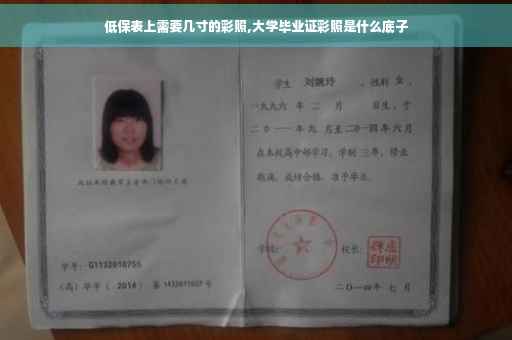 低保表上需要几寸的彩照,大学毕业证彩照是什么底子
学生 刘婉玲 ,性别 女 ,
一九九六 年 二 月 日生,于
二〇一一 年 九 月至 二〇一四 年 六 月
在本校高中部学习,学制 三 年,修业
期满,成绩合格,准予毕业。
学号: G1132010755
(高)毕字( 2014 )第 1432011037 号
学校:
校长:
二〇一四年 七 月